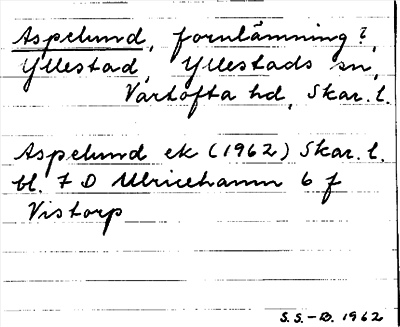 Aspelund, fornlämning?,
Yllestad, Yllestads sn,
Vartofta hd, Skar. l.
Aspelund ek (1962) Skar. l.
bl. 7 D Ulricehamn 6 f
Vistorp
S.S.-B. 1962